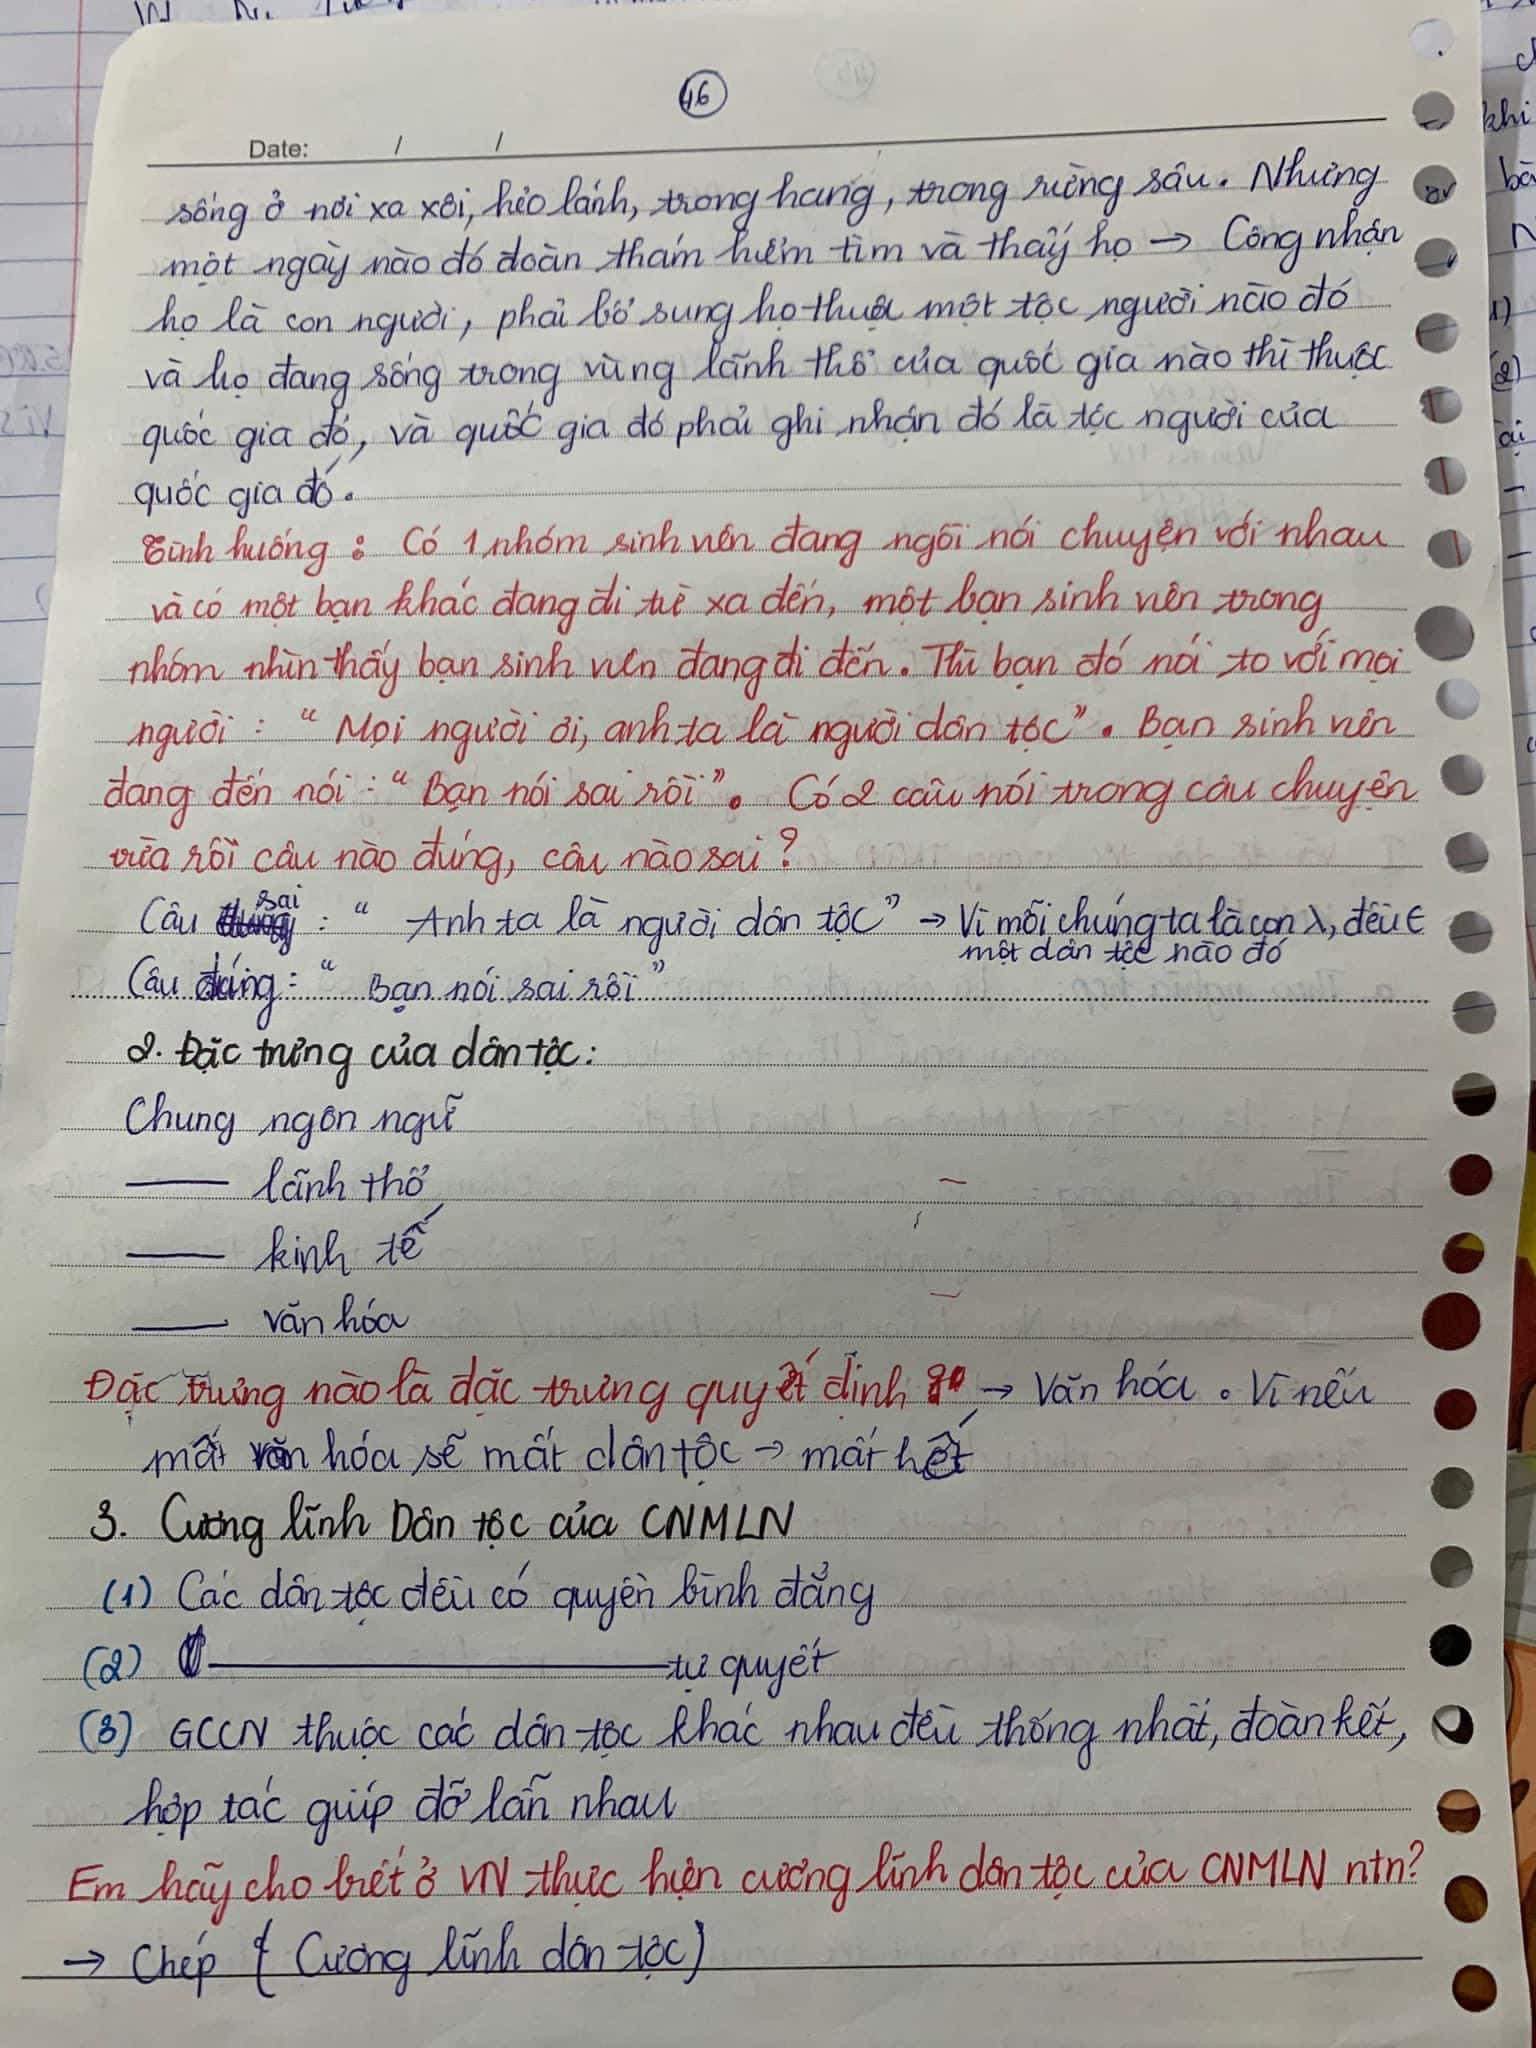 46
Date: / /
sống ở nơi xa xôi, hẻo lánh, trong hang, trong rừng sâu. Nhưng
một ngày nào đó đoàn thám hiểm tìm và thấy họ → Công nhận
họ là con người, phải bổ sung họ thuộc một tộc người nào đó
và họ đang sống trong vùng lãnh thổ của quốc gia nào thì thuộc
quốc gia đó, và quốc gia đó phải ghi nhận đó là tộc người của
quốc gia đó.
Tình huống : Có 1 nhóm sinh viên đang ngồi nói chuyện với nhau
và có một bạn khác đang đi từ xa đến, một bạn sinh viên trong
nhóm nhìn thấy bạn sinh viên đang đi đến. Thì bạn đó nói to với mọi
người : “ Mọi người ơi, anh ta là người dân tộc”. Bạn sinh viên
đang đến nói : “ Bạn nói sai rồi”. Có 2 câu nói trong câu chuyện
vừa rồi câu nào đúng, câu nào sai ?
Câu sai : “ Anh ta là người dân tộc” → Vì mỗi chúng ta là con λ, đều ∈
một dân tộc nào đó
Câu đúng : “ Bạn nói sai rồi”
2. Đặc trưng của dân tộc :
Chung ngôn ngữ
—— lãnh thổ
—— kinh tế
—— văn hóa
Đặc trưng nào là đặc trưng quyết định → Văn hóa. Vì nếu
mất văn hóa sẽ mất dân tộc → mất hết
3. Cương lĩnh Dân tộc của CNMLN
(1) Các dân tộc đều có quyền bình đẳng
(2) —————— tự quyết
(3) GCCN thuộc các dân tộc khác nhau đều thống nhất, đoàn kết,
hợp tác giúp đỡ lẫn nhau
Em hãy cho biết ở VN thực hiện cương lĩnh dân tộc của CNMLN ntn?
→ Chép { Cương lĩnh dân tộc)